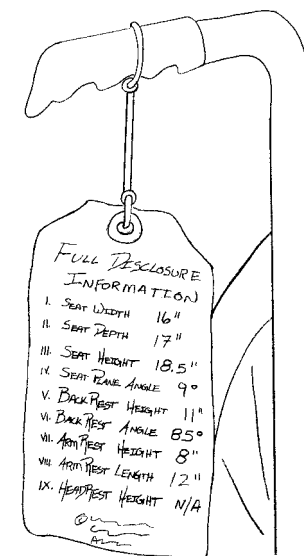 FULL DISCLOSURE
INFORMATION
I. SEAT WIDTH 16"
II. SEAT DEPTH 17"
III. SEAT HEIGHT 18.5"
IV. SEAT PLANE ANGLE 9°
V. BACK REST HEIGHT 11"
VI. BACK REST ANGLE 85°
VII. ARM REST HEIGHT 8"
VIII. ARM REST LENGTH 12"
IX. HEADREST HEIGHT N/A